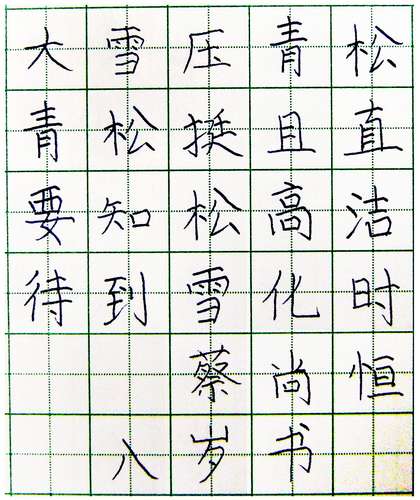 大雪压青松
青松挺且直
要知松高洁
待到雪化时
蔡尚恒
八岁书